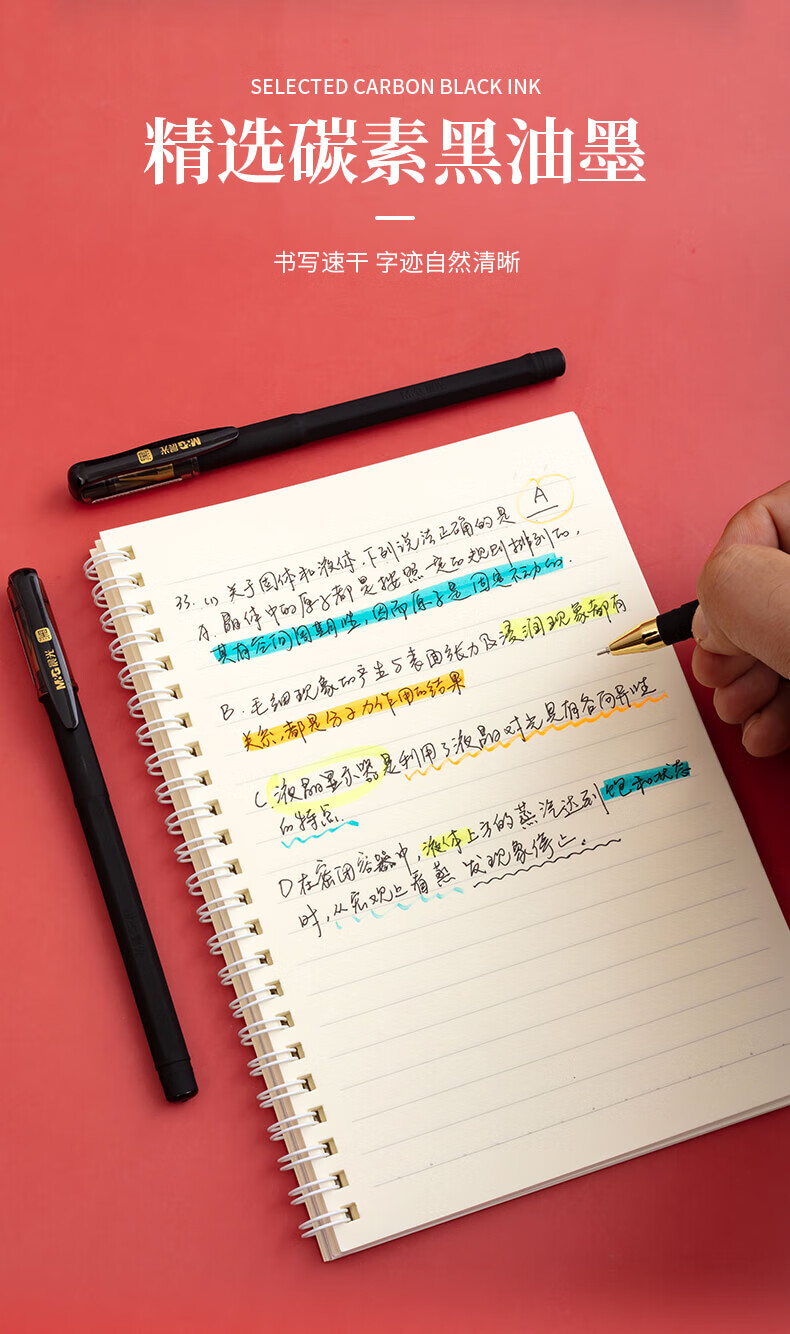 SELECTED CARBON BLACK INK
精选碳素黑油墨
书写速干 字迹自然清晰
M&G晨光
M&G晨光
A
33. (1) 关于固体和液体,下列说法正确的是
A. 晶体中的原子都是按照一定的规则排列的,
其有空间周期性,因而原子是固定不动的.
B. 毛细现象的产生与表面张力及浸润现象都有
关系,都是分子力作用的结果
C. 液晶显示器是利用了液晶对光具有各向异性
的特点.
D 在密闭容器中,液体上方的蒸汽达到饱和状态
时,从宏观上看蒸发现象停止.